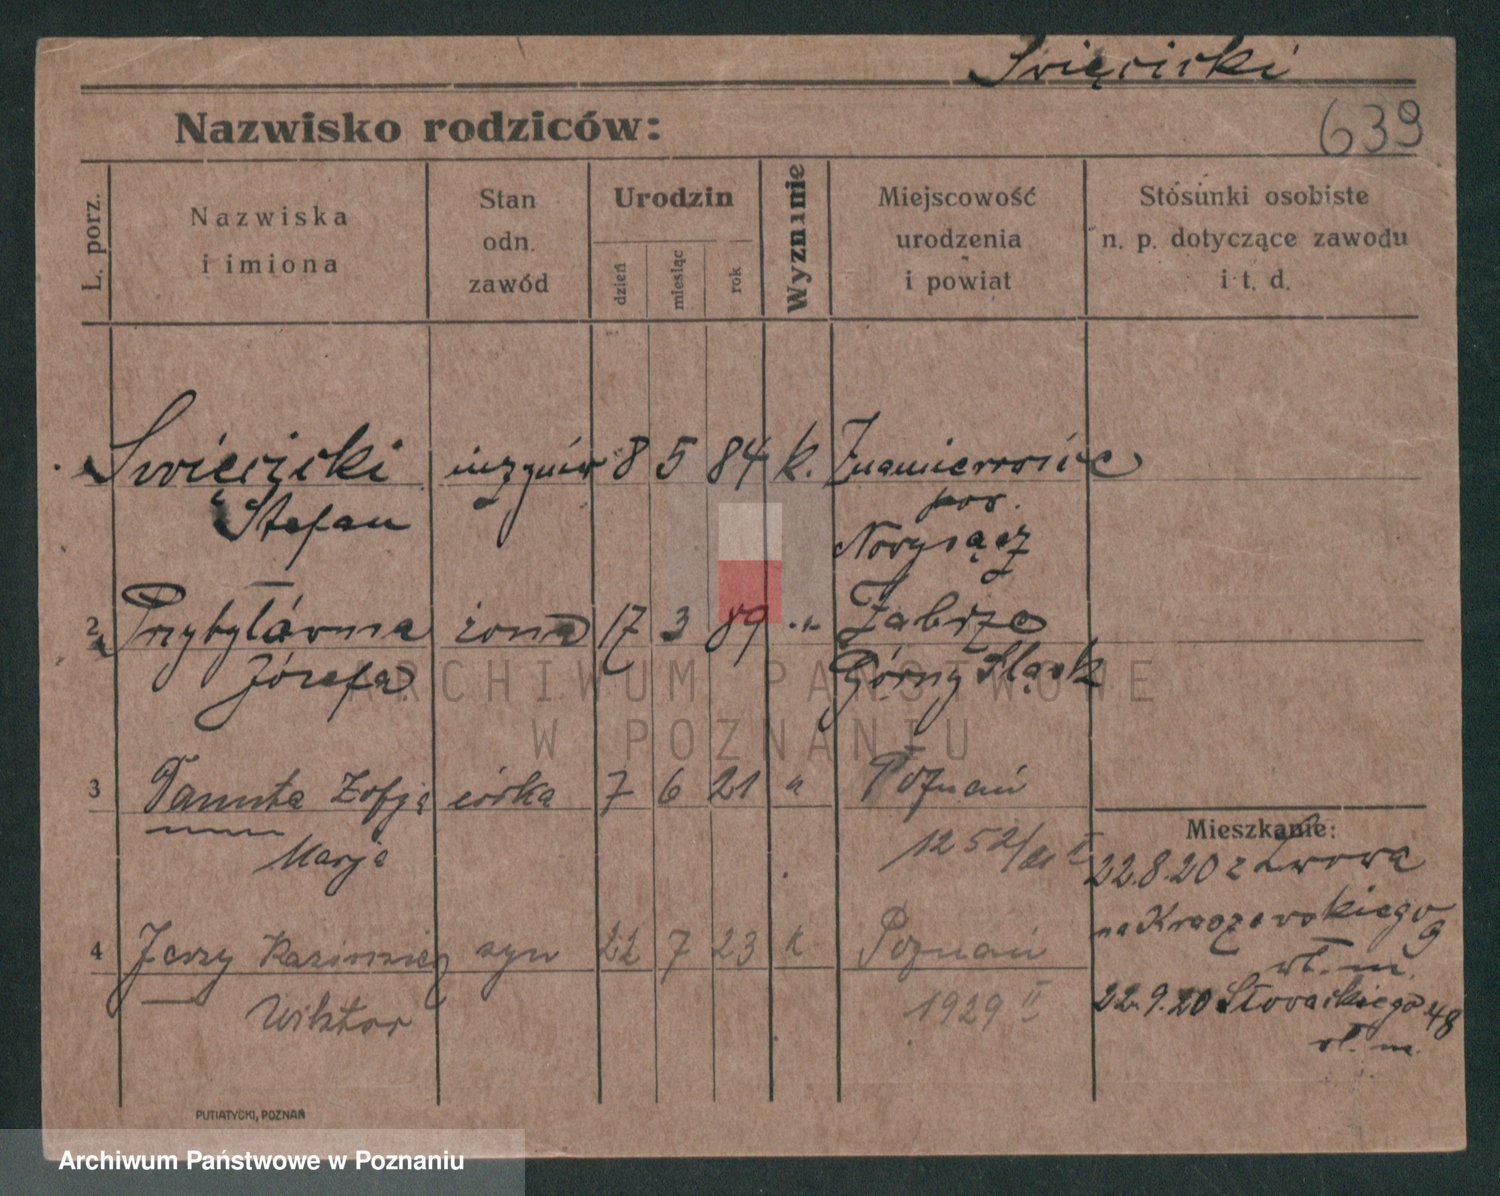 Święcicki
Nazwisko rodziców:
639
L. porz.
Nazwiska
i imiona
Stan
odn.
zawód
Urodzin
dzień
miesiąc
rok
Wyznanie
Miejscowość
urodzenia
i powiat
Stosunki osobiste
n. p. dotyczące zawodu
i t. d.
Święcicki 8 5 84 k.
Stefan pow.
Nowysącz
2 Przybyłówna żona 17 3 89 „ Zabrze
Józefa Górny Śląsk
3 Danuta Zofja córka 7 6 21 " Poznań
Marja 1252/21 II
4 Jerzy Kazimierz syn 22 7 23 k Poznań
Wiktor 1929 II
Mieszkanie:
22.8.20 z Lwowa
na Kraszewskiego 9
wł. m.
22.9.20 Słowackiego 48
wł. m.
PUTIATYCKI, POZNAŃ
ARCHIWUM PAŃSTWOWE
W POZNANIU
Archiwum Państwowe w Poznaniu